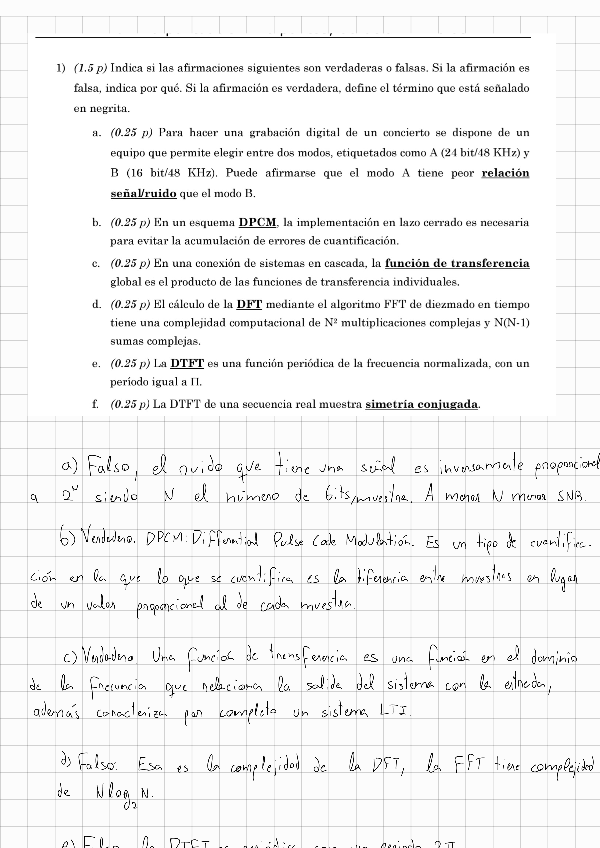 1) (1.5 p) Indica si las afirmaciones siguientes son verdaderas o falsas. Si la afirmación es
falsa, indica por qué. Si la afirmación es verdadera, define el término que está señalado
en negrita.
a. (0.25 p) Para hacer una grabación digital de un concierto se dispone de un
equipo que permite elegir entre dos modos, etiquetados como A (24 bit/48 KHz) y
B (16 bit/48 KHz). Puede afirmarse que el modo A tiene peor relación
señal/ruido que el modo B.
b. (0.25 p) En un esquema DPCM, la implementación en lazo cerrado es necesaria
para evitar la acumulación de errores de cuantificación.
c. (0.25 p) En una conexión de sistemas en cascada, la función de transferencia
global es el producto de las funciones de transferencia individuales.
d. (0.25 p) El cálculo de la DFT mediante el algoritmo FFT de diezmado en tiempo
tiene una complejidad computacional de N² multiplicaciones complejas y N(N-1)
sumas complejas.
e. (0.25 p) La DTFT es una función periódica de la frecuencia normalizada, con un
período igual a Π.
f. (0.25 p) La DTFT de una secuencia real muestra simetría conjugada.
a) Falso, el ruido que tiene una señal es inversamente proporcional
a 2^N siendo N el número de bits/muestra. A menor N menor SNR.
b) Verdadero. DPCM: Differential Pulse Code Modulation. Es un tipo de cuantifica-
ción en la que lo que se cuantifica es la diferencia entre muestras en lugar
de un valor proporcional al de cada muestra.
c) Verdadero Una función de transferencia es una función en el dominio
de la frecuncia que relaciona la salida del sistema con la entrada,
además caracteriza por completo un sistema LTI.
d) Falso. Esa es la complejidad de la DFT, la FFT tiene complejidad
de N log₂ N.